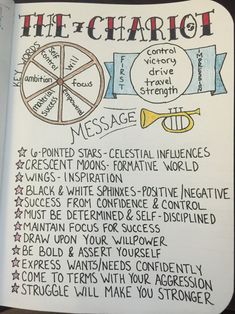 THE 7 CHARIOT
KEYWORDS
self control
will
focus
empowered
material success
ambition
FIRST
control
victory
drive
travel
strength
IMPRESSION
MESSAGE
6-POINTED STARS-CELESTIAL INFLUENCES
CRESCENT MOONS-FORMATIVE WORLD
WINGS-INSPIRATION
BLACK & WHITE SPHINXES-POSITIVE/NEGATIVE
SUCCESS FROM CONFIDENCE & CONTROL
MUST BE DETERMINED & SELF-DISCIPLINED
MAINTAIN FOCUS FOR SUCCESS
DRAW UPON YOUR WILLPOWER
BE BOLD & ASSERT YOURSELF
EXPRESS WANTS/NEEDS CONFIDENTLY
COME TO TERMS WITH YOUR AGGRESSION
STRUGGLE WILL MAKE YOU STRONGER